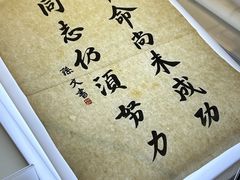 命尚未成功
同志仍須努力
孫文書